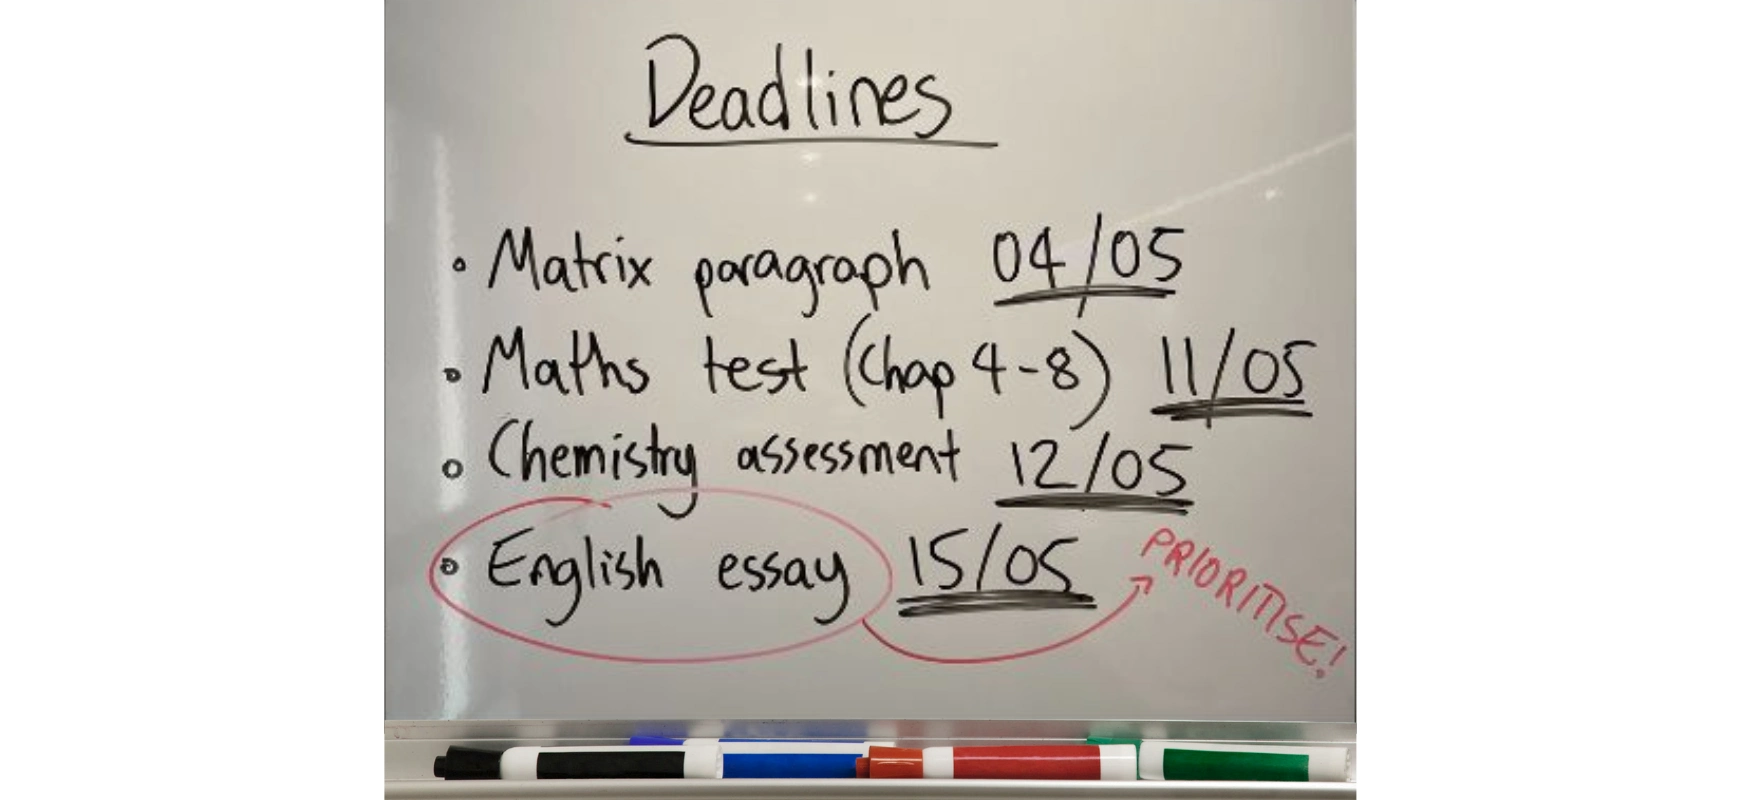 Deadlines
• Matrix paragraph 04/05
• Maths test (Chap 4-8) 11/05
• Chemistry assessment 12/05
• English essay 15/05
PRIORITISE!